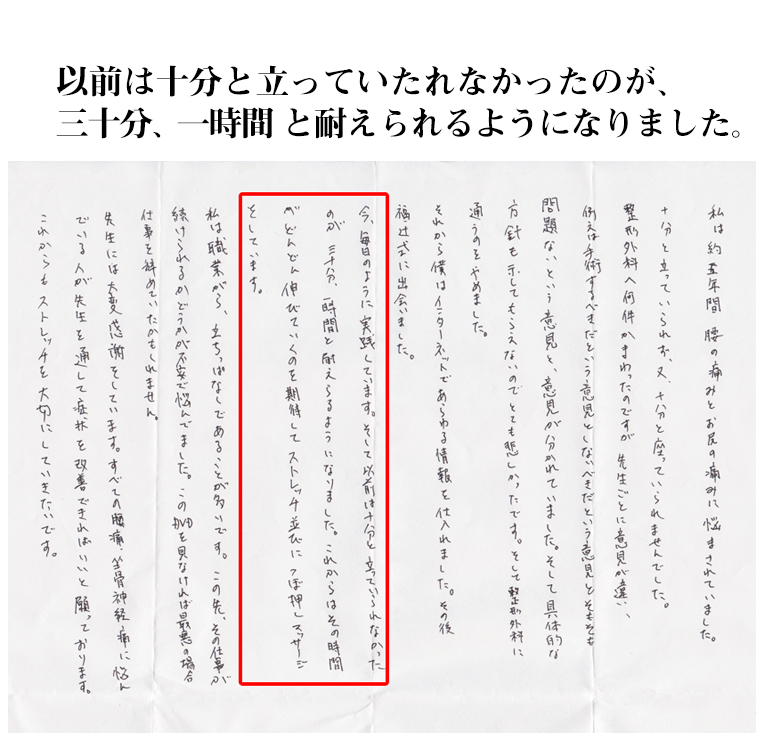 以前は十分と立っていたれなかったのが、
三十分、一時間 と耐えられるようになりました。
私は約五年間 腰の痛みとお尻の痛みに悩まされていました。
十分と立っていられず、又、十分と座っていられませんでした。
整形外科へ何件かまわったのですが 先生ごとに意見が違い、
例えば手術するべきだという意見としないべきだという意見とそもそも
問題ないという意見と、意見が分かれていました。そして具体的な
方針も示してもらえないので とても悲しかったです。そして整形外科に
通うのをやめました。
それから僕はインターネットであらゆる情報を仕入れました。その後
福辻式に出会いました。
今、毎日のように実践しています。そして以前は十分と立っていられなかった
のが 三十分、一時間と耐えらるようになりました。これからはその時間
がどんどん伸びていくのを期待してストレッチ並びにつぼ押しマッサージ
をしています。
私は、職業がら、立ちっぱなしであることが多いです。この先、その仕事が
続けられるかどうかが不安で悩んでました。このDVDを見なければ最悪の場合
仕事を辞めていたかもしれません。
先生には大変感謝をしています。すべての腰痛、坐骨神経痛に悩ん
でいる人が先生を通して症状を改善できればいいと願っております。
これからもストレッチを大切にしていきたいです。